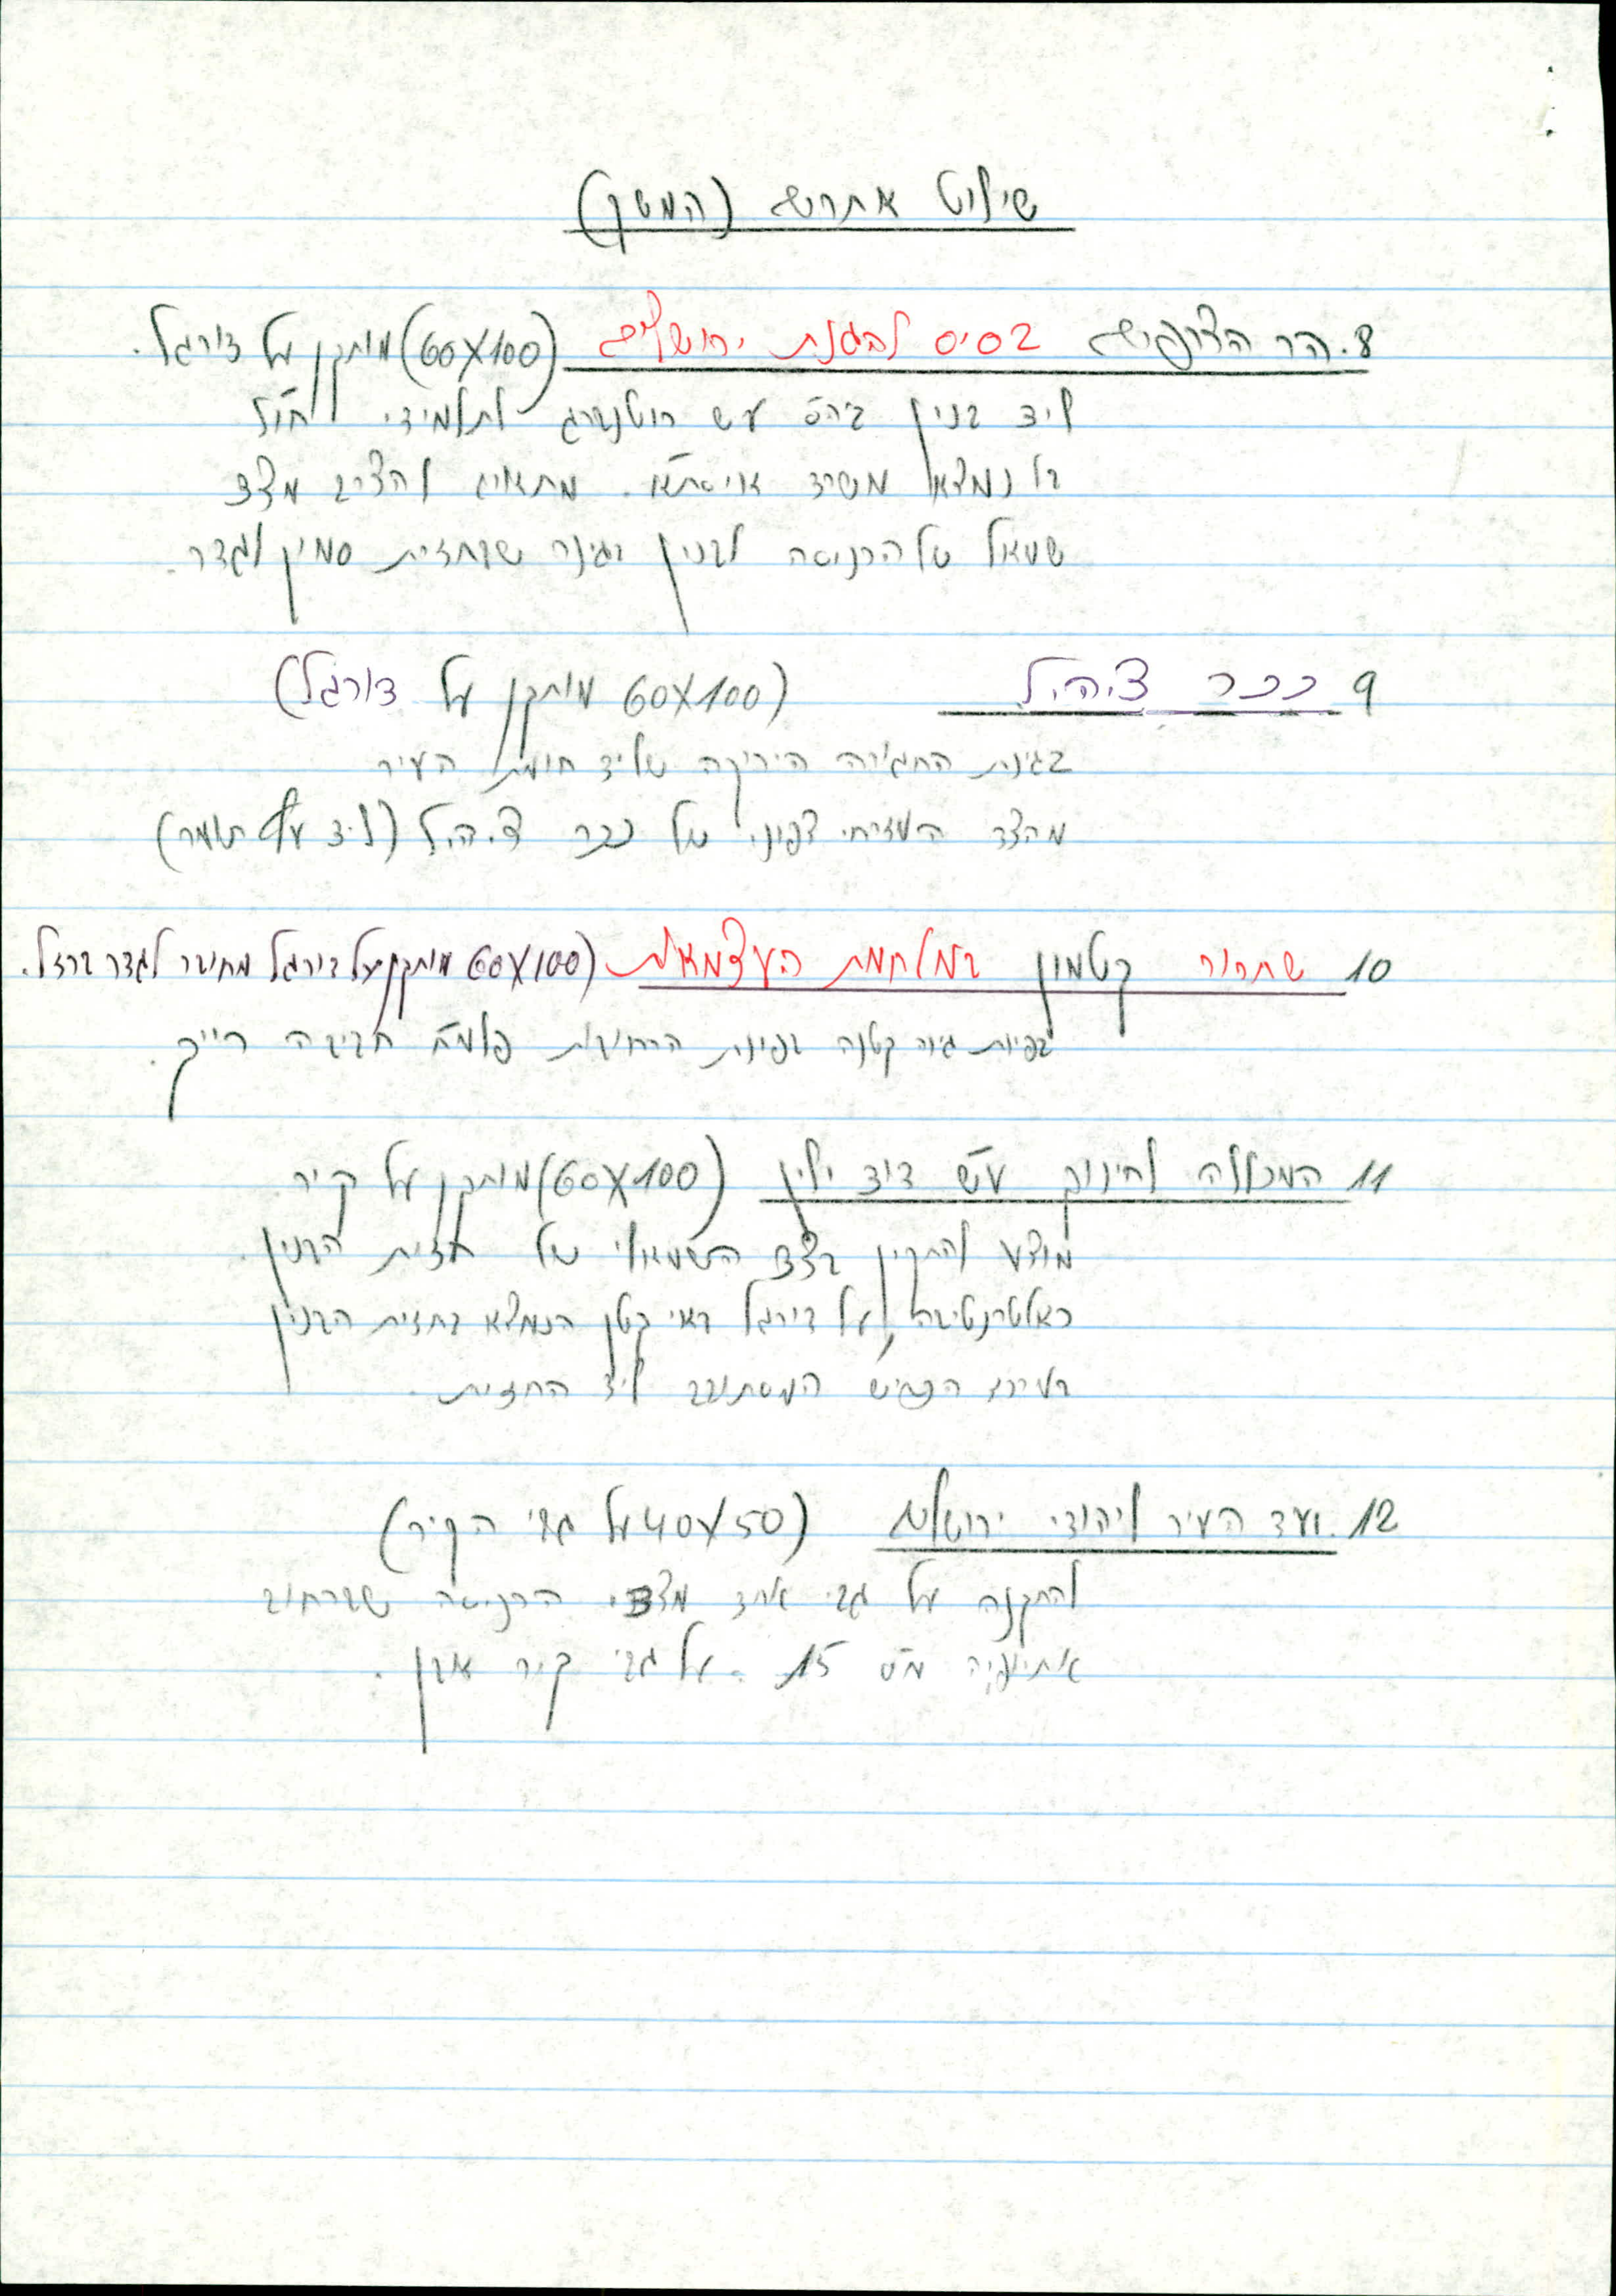 שילוט אתרים (המשך)
8. הר הצופים בסיס להגנת ירושלים (60X100) מותקן על דורגל.
ליד בנין ביה"ס ע"ש רוטנברג לתלמידי חו"ל
בו נמצא משרד אויסת"א. מתאים להציב מצד
שמאל של הכניסה לבנין בגינה שבחזית סמוך לגדר.
9 ככר צ.ה.ל (60X100 מותקן על דורגל)
בגינת החגורה הירוקה שליד חומת העיר
מהצד המזרחי צפוני של ככר צ.ה.ל (ליד עץ תומר)
10 שחרור קטמון במלחמת העצמאות (60X100 מותקן על דורגל מחובר לגדר ברזל.
בפינת גינה קטנה בפינת הרחובות פלמ"ח חביבה רייק.
11 המכללה לחינוך ע"ש דוד ילין (60X100) מותקן על קיר
מוצע להתקין בצד השמאלי של חזית הבנין.
כאלטרנטיבה, על דורגל באי קטן הנמצא בחזית הבנין
הכביש המסתובב ליד החזית.
12. ועד העיר ליהודי ירושלים (40X50 על גבי הקיר)
להתקנה על גבי אחד מצדי הכניסה שברחוב
אתיופיה מס' 15. על גבי קיר אבן.